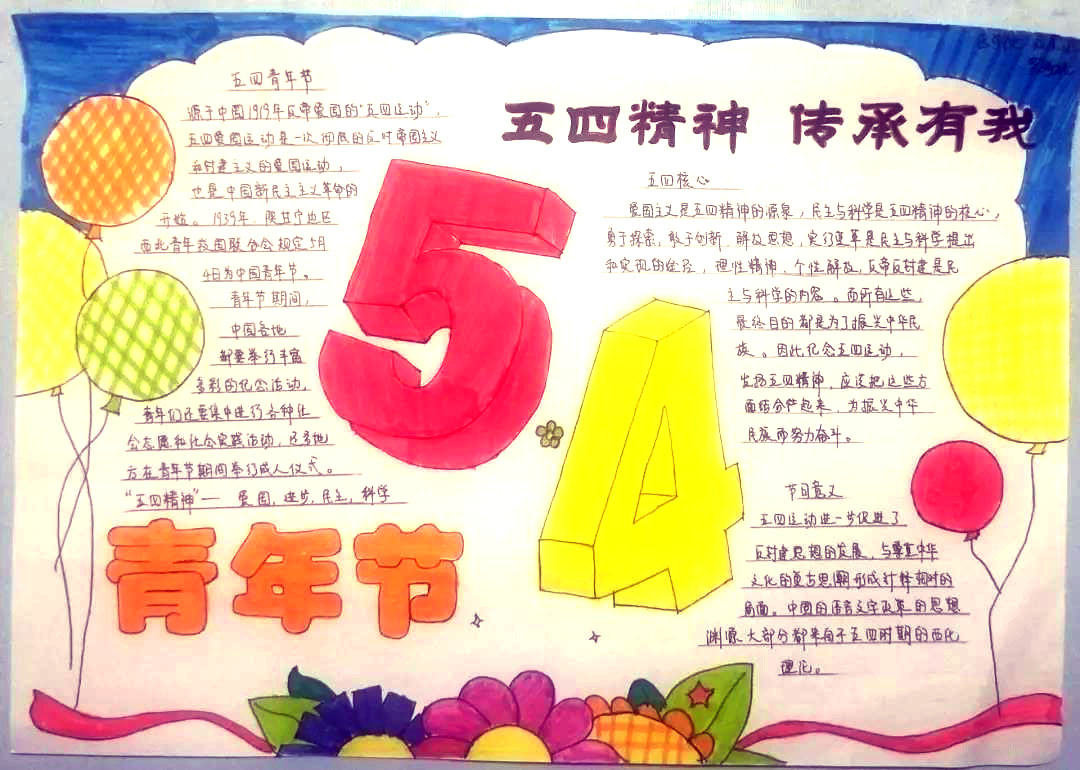 五四精神 传承有我
五四青年节
源于中国1919年反帝爱国的“五四运动”，
五四爱国运动是一次彻底的反对帝国主义
和封建主义的爱国运动，
也是中国新民主主义革命的
开始。1939年，陕甘宁边区
西北青年救国联合会规定5月
4日为中国青年节。
青年节期间，
中国各地
都要举行丰富
多彩的纪念活动，
青年们还要集中进行各种社
会志愿和社会实践活动，还有地
方在青年节期间举行成人仪式。
“五四精神”— 爱国，进步，民主，科学
青年节
54
五四核心
爱国主义是五四精神的源泉，民主与科学是五四精神的核心，
勇于探索，敢于创新，解放思想，实行变革是民主与科学提出
和实现的途径，理性精神、个性解放，反帝反封建是民
主与科学的内容。而所有这些，
最终目的都是为了振兴中华民
族。因此纪念五四运动，
发扬五四精神，应该把这些方
面结合起来，为振兴中华
民族而努力奋斗。
节日意义
五四运动进一步促进了
反封建思想的发展，与尊重中华
文化的复古思潮形成针锋相对的
局面。中国的语言文字改革的思想
渊源大部分都来自于五四时期的西化
理论。